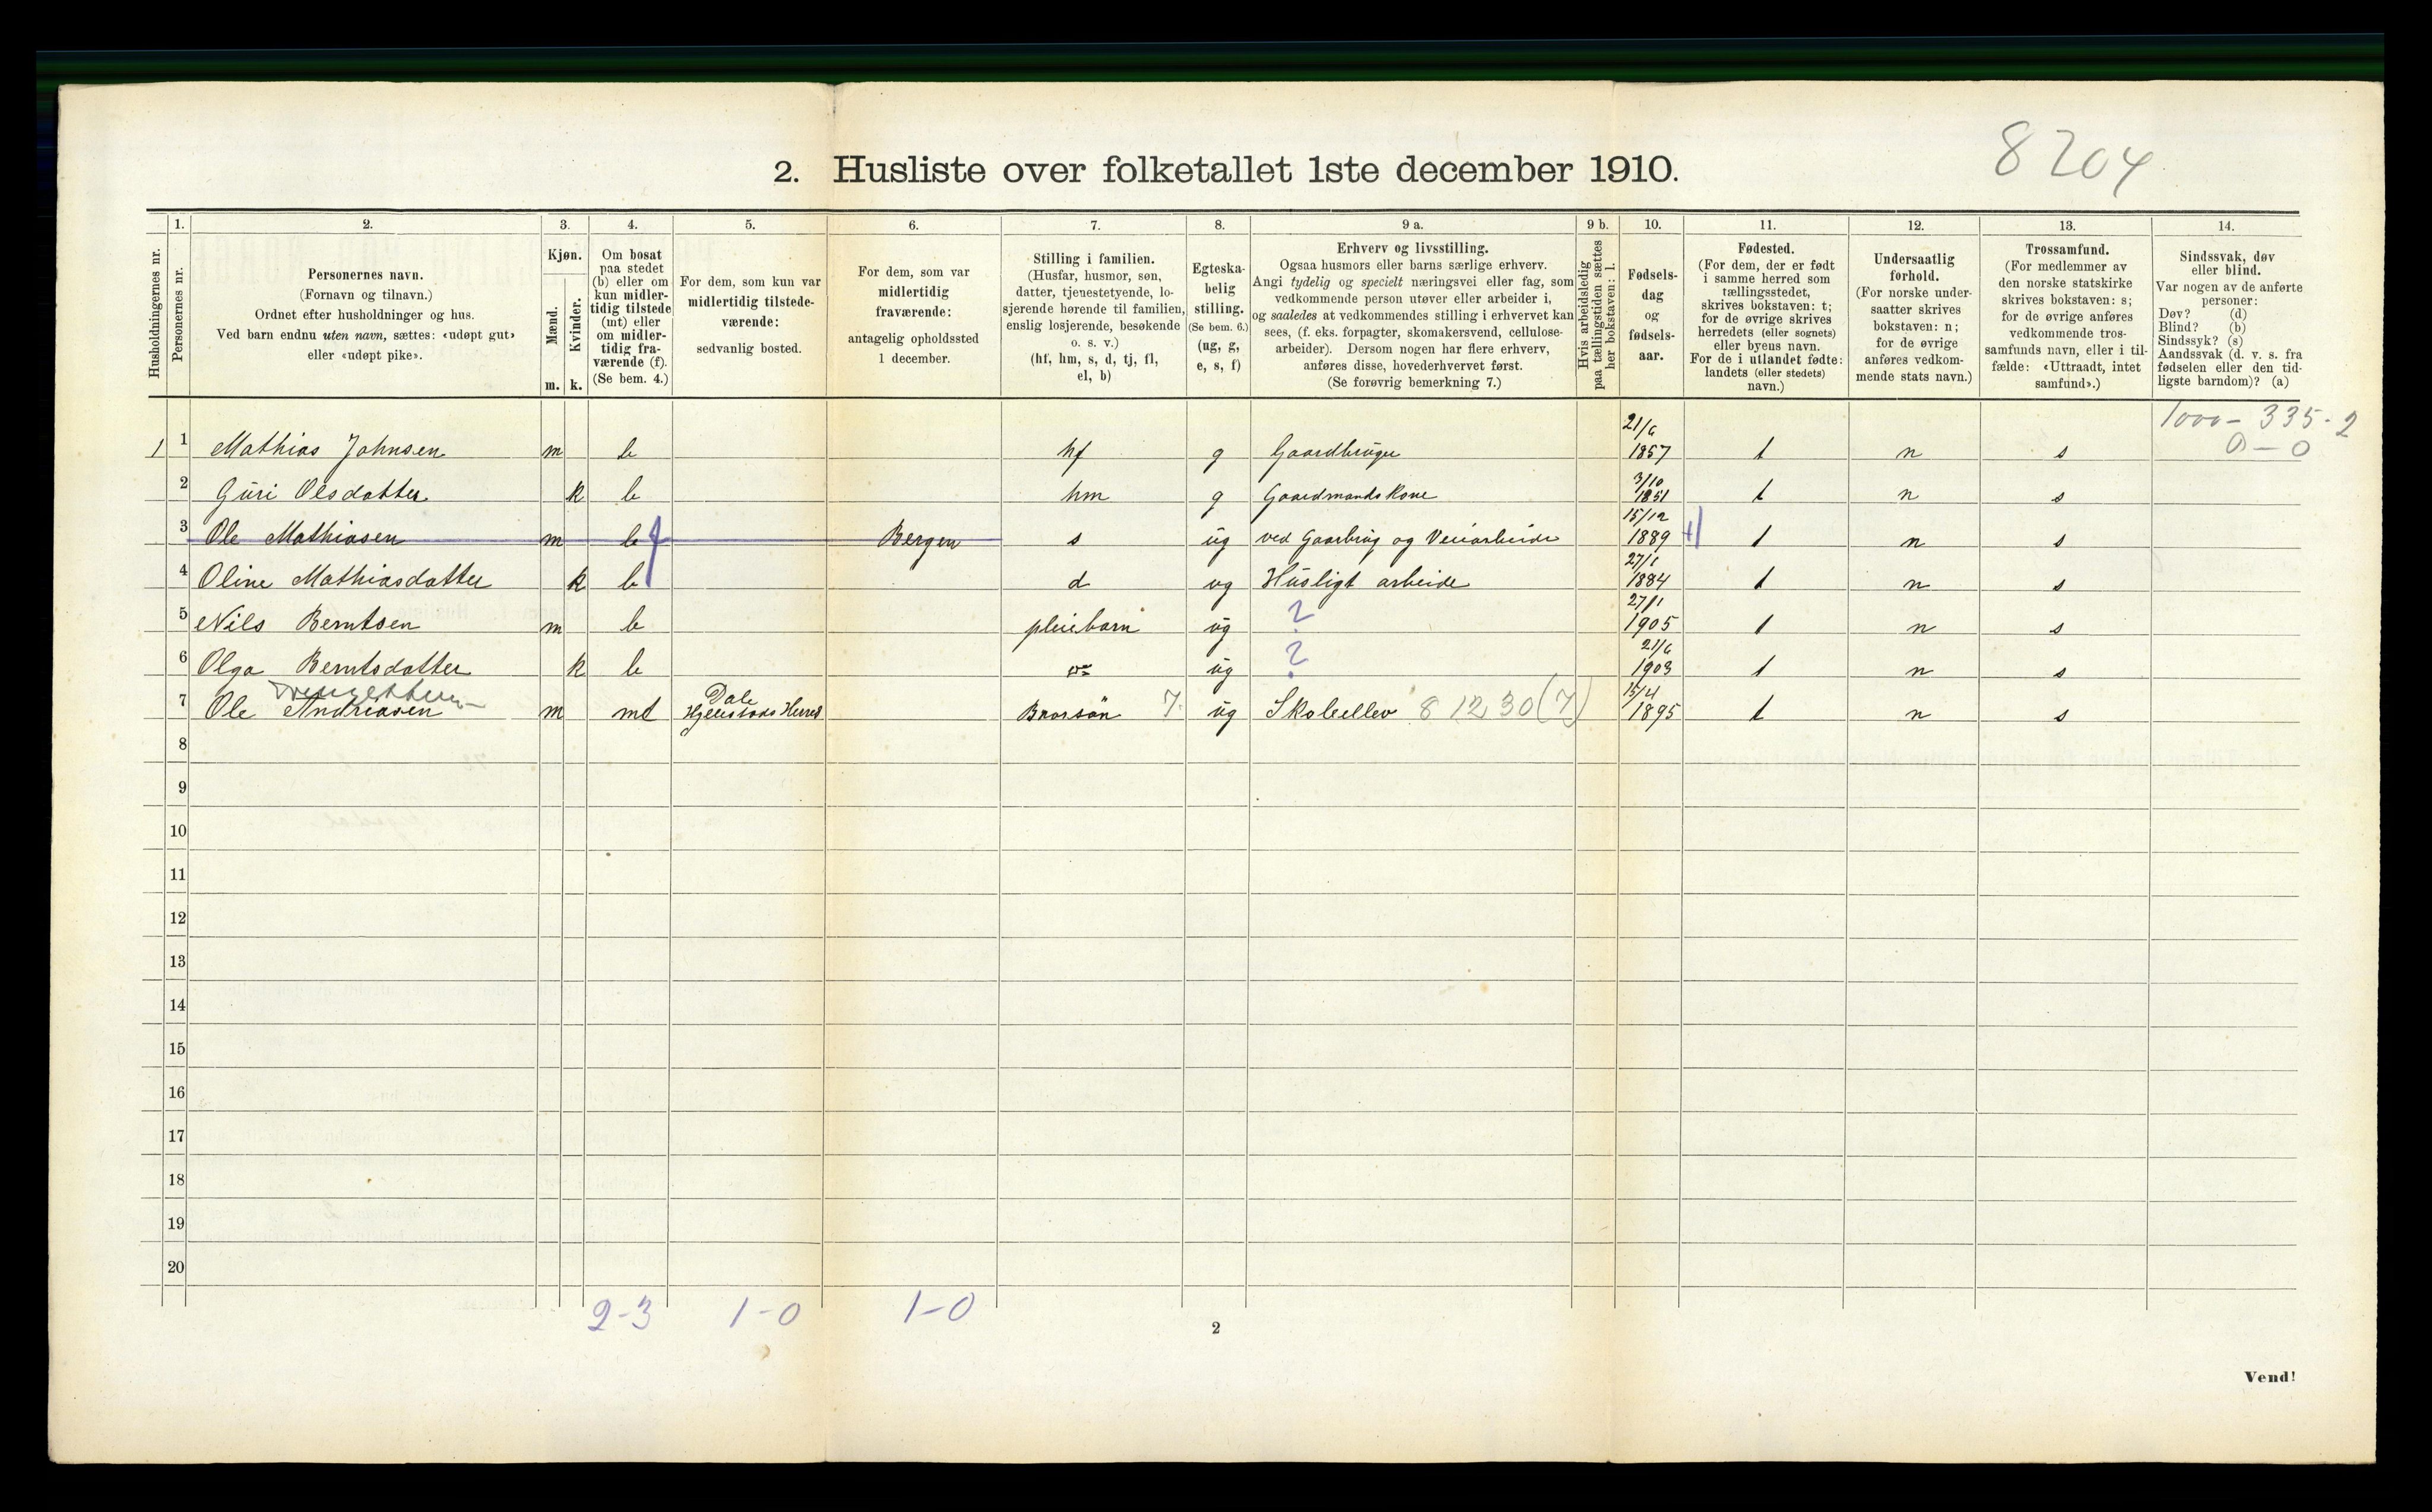 8204
2. Husliste over folketallet 1ste december 1910.
Husholdningernes nr.
1.
Personernes nr.
2.
Personernes navn.
(Fornavn og tilnavn.)
Ordnet efter husholdninger og hus.
Ved barn endnu uten navn, sættes: «udøpt gut»
eller «udøpt pike».
3.
Kjøn.
Mænd.
m.
Kvinder.
k.
4.
Om bosat
paa stedet
(b) eller om
kun midler-
tidig tilstede
(mt) eller
om midler-
tidig fra-
værende (f).
(Se bem. 4.)
5.
For dem, som kun var
midlertidig tilstede-
værende:
sedvanlig bosted.
6.
For dem, som var
midlertidig
fraværende:
antagelig opholdssted
1 december.
7.
Stilling i familien.
(Husfar, husmor, søn,
datter, tjenestetyende, lo-
sjerende hørende til familien,
enslig losjerende, besøkende
o. s. v.)
(hf, hm, s, d, tj, fl,
el, b)
8.
Egteska-
belig
stilling.
(Se bem. 6.)
(ug, g,
e, s, f)
9 a.
Erhverv og livsstilling.
Ogsaa husmors eller barns særlige erhverv.
Angi tydelig og specielt næringsvei eller fag, som
vedkommende person utøver eller arbeider i,
og saaledes at vedkommendes stilling i erhvervet kan
sees, (f. eks. forpagter, skomakersvend, cellulose-
arbeider). Dersom nogen har flere erhverv,
anføres disse, hovederhvervet først.
(Se forøvrig bemerkning 7.)
9 b.
Hvis arbeidsledig
paa tællingstiden sættes
her bokstaven: l.
10.
Fødsels-
dag
og
fødsels-
aar.
11.
Fødested.
(For dem, der er født
i samme herred som
tællingsstedet,
skrives bokstaven: t;
for de øvrige skrives
herredets (eller sognets)
eller byens navn.
For de i utlandet fødte:
landets (eller stedets)
navn.)
12.
Undersaatlig
forhold.
(For norske under-
saatter skrives
bokstaven: n;
for de øvrige
anføres vedkom-
mende stats navn.)
13.
Trossamfund.
(For medlemmer av
den norske statskirke
skrives bokstaven: s;
for de øvrige anføres
vedkommende tros-
samfunds navn, eller i til-
fælde: «Uttraadt, intet
samfund».)
14.
Sindssvak, døv
eller blind.
Var nogen av de anførte
personer:
Døv? (d)
Blind? (b)
Sindssyk? (s)
Aandssvak (d. v. s. fra
fødselen eller den tid-
ligste barndom)? (a)
1000 - 335 - 2
0 - 0
1 1 Mathias Johnsen m b hf g Gaardbruger 21/6 1857 t n s
2 Guri Olsdatter k b hm g Gaardmandskone 3/10 1851 t n s
3 Ole Mathiasen m b f Bergen s ug ved Gaarbrug og Veiiarbeide 15/12 1889 t n s
4 Oline Mathiasdatter k b d ug Husligt arbeide 27/1 1884 t n s
5 Nils Berntsen m b pleiebarn ug ? 27/1 1905 t n s
6 Olga Berntsdatter k b ug ? 21/6 1903 t n s
7 Ole Andriasen m mt Dale Herred 7. ug Skoleellev 8 12 30 (7) 15/4 1895 t n s
8
9
10
11
12
13
14
15
16
17
18
19
20
2-3 1-0 1-0
2
Vend!